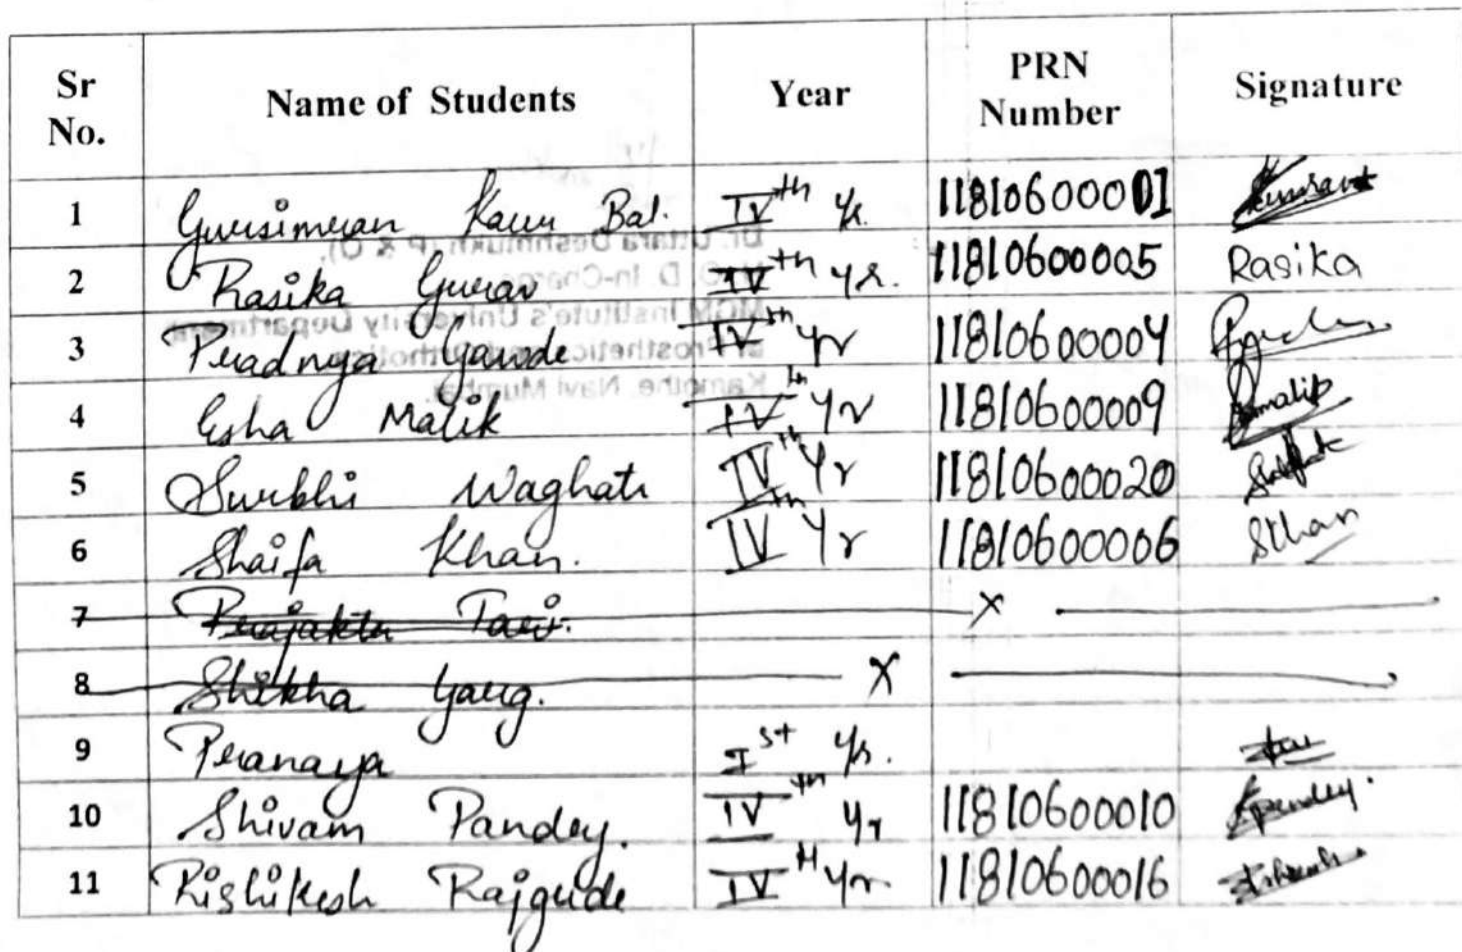 Sr No. Name of Students Year PRN Number Signature
1 Gursimran Kaur Bal. IVth Yr. 11810600001
2 Rasika Gurav IVth yr. 11810600005 Rasika
3 Pradnya Gawde IVth yr 11810600004
4 Esha Malik IVth Yr 11810600009
5 Surbhi Waghate IVth Yr 11810600020
6 Shaifa Khan. IVth Yr 11810600006 SKhan
7 Prajakta Tari. X
8 Shikha Garg. X
9 Pranaya Ist Yr.
10 Shivam Pandey. IVth Yr 11810600010 Spandey.
11 Rishikesh Rajgude IVth yr. 11810600016